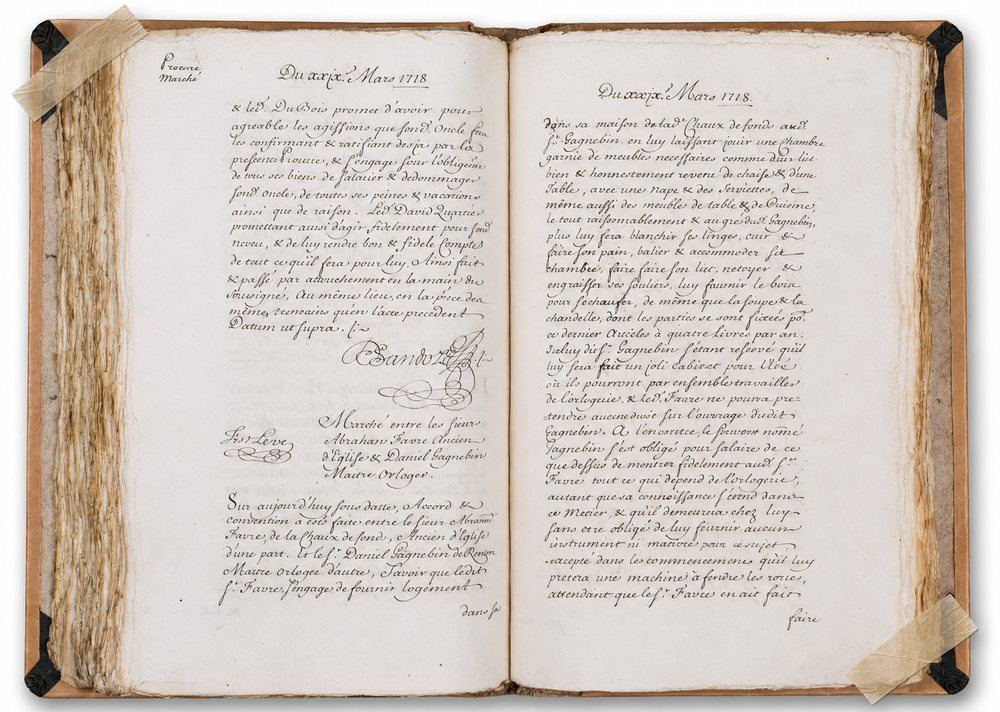 Procure
Marché
Du xxix.e Mars 1718
& led. DuBois promet d'avoir pour
agreable les agissions que sond. Oncle fera
les confirmant & ratifiant desja par les
presences Procure, & s'engage sous l'obligeon
de tous ses biens de salarier & dedommager
sond. oncle, de toutes ses peines & vacations
ainsi que de raison. Led. David Quartier
promettant aussi d'agir fidelement pour sond.
neveu, & de luy rendre bon & fidele Compte
de tout ce qu'il fera pour luy. Ainsi fait
& passé par attouchement en la main du
Sousigné, Au même lieu, en la p'nce des
mêmes temoins qu'en l'acte precedent
Datum ut supra.
Sandoz
frs Leve
Marché entre les sieurs
Abraham Favre Ancien
d'Eglise & Daniel Gagnebin
Maitre Orloger.
Sur aujourd'huy sous datte, Accord &
convention a esté faite entre le sieur Abram
Favre, de la Chaux de fond, Ancien d'Eglise
d'une part. et le sr. Daniel Gagnebin de Renan
Maitre orloger d'autre, Savoir que ledit
sr. Favre, s'engage de fournir logement
dans sa
Du xxix.e Mars 1718.
dans sa maison de lad.e Chaux de fonds aud.
sr. Gagnebin, en luy laissant jouir une Chambre
garnie de meubles necessaires comme d'un lict
bien & honnestement revetu de chaise & d'une
Table, avec une nape & des Serviettes, de
même aussi des meuble de table & de Cuisine,
le tout raisonnablement & au gré dud. Gagnebin,
plus luy fera blanchir ses linges, cuir &
faire son pain, balier & accommoder sa
chambre, faire faire son lict, netoyer &
engraisser ses souliers, luy fournir le bois
pour s'echaufer, de même que la soupe & la
chandelle, dont les parties se sont fixées po.
ce dernier Articles à quatre livres par an.
Iceluy dit sr. Gagnebin s'etant reservé qu'il
luy sera fait un joli Cabinet pour l'Eté
où ils pourront par ensemble travailler
de l'orlogerie, & led. Favre ne pourra pre-
tendre aucune chose sur l'ouvrage dudit
Gagnebin. A l'encontre, le souvent nommé
Gagnebin s'est obligé pour salaire de ce
que dessus de montrer fidelement aud. sr.
Favre tout ce qui depend de l'orlogerie,
autant que sa connoissance s'etend dans
ce Metier, & qu'il demeurera chez luy
sans etre obligé de luy fournir aucun
instrument ni matiere pour ce sujet,
excepté dans les commencemens qu'il luy
pretera une machine à fendre les roues,
attendant que le sr. Favre en ait fait
faire